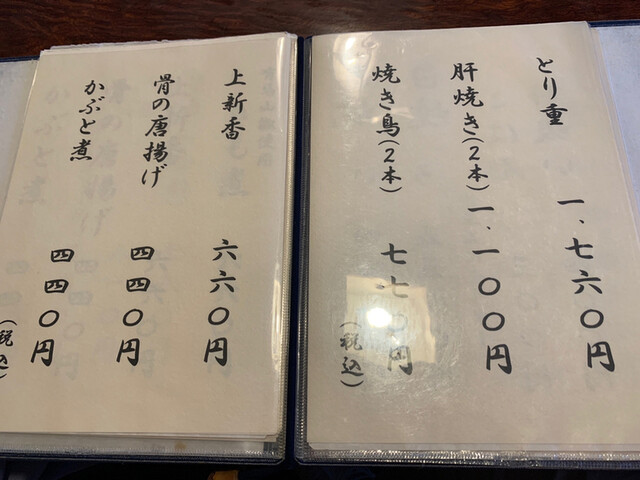 とり重 一、七六〇円
肝焼き(2本) 一、一〇〇円
焼き鳥(2本) 七七〇円
(税込)
上新香 六六〇円
骨の唐揚げ 四四〇円
かぶと煮 四四〇円
(税込)